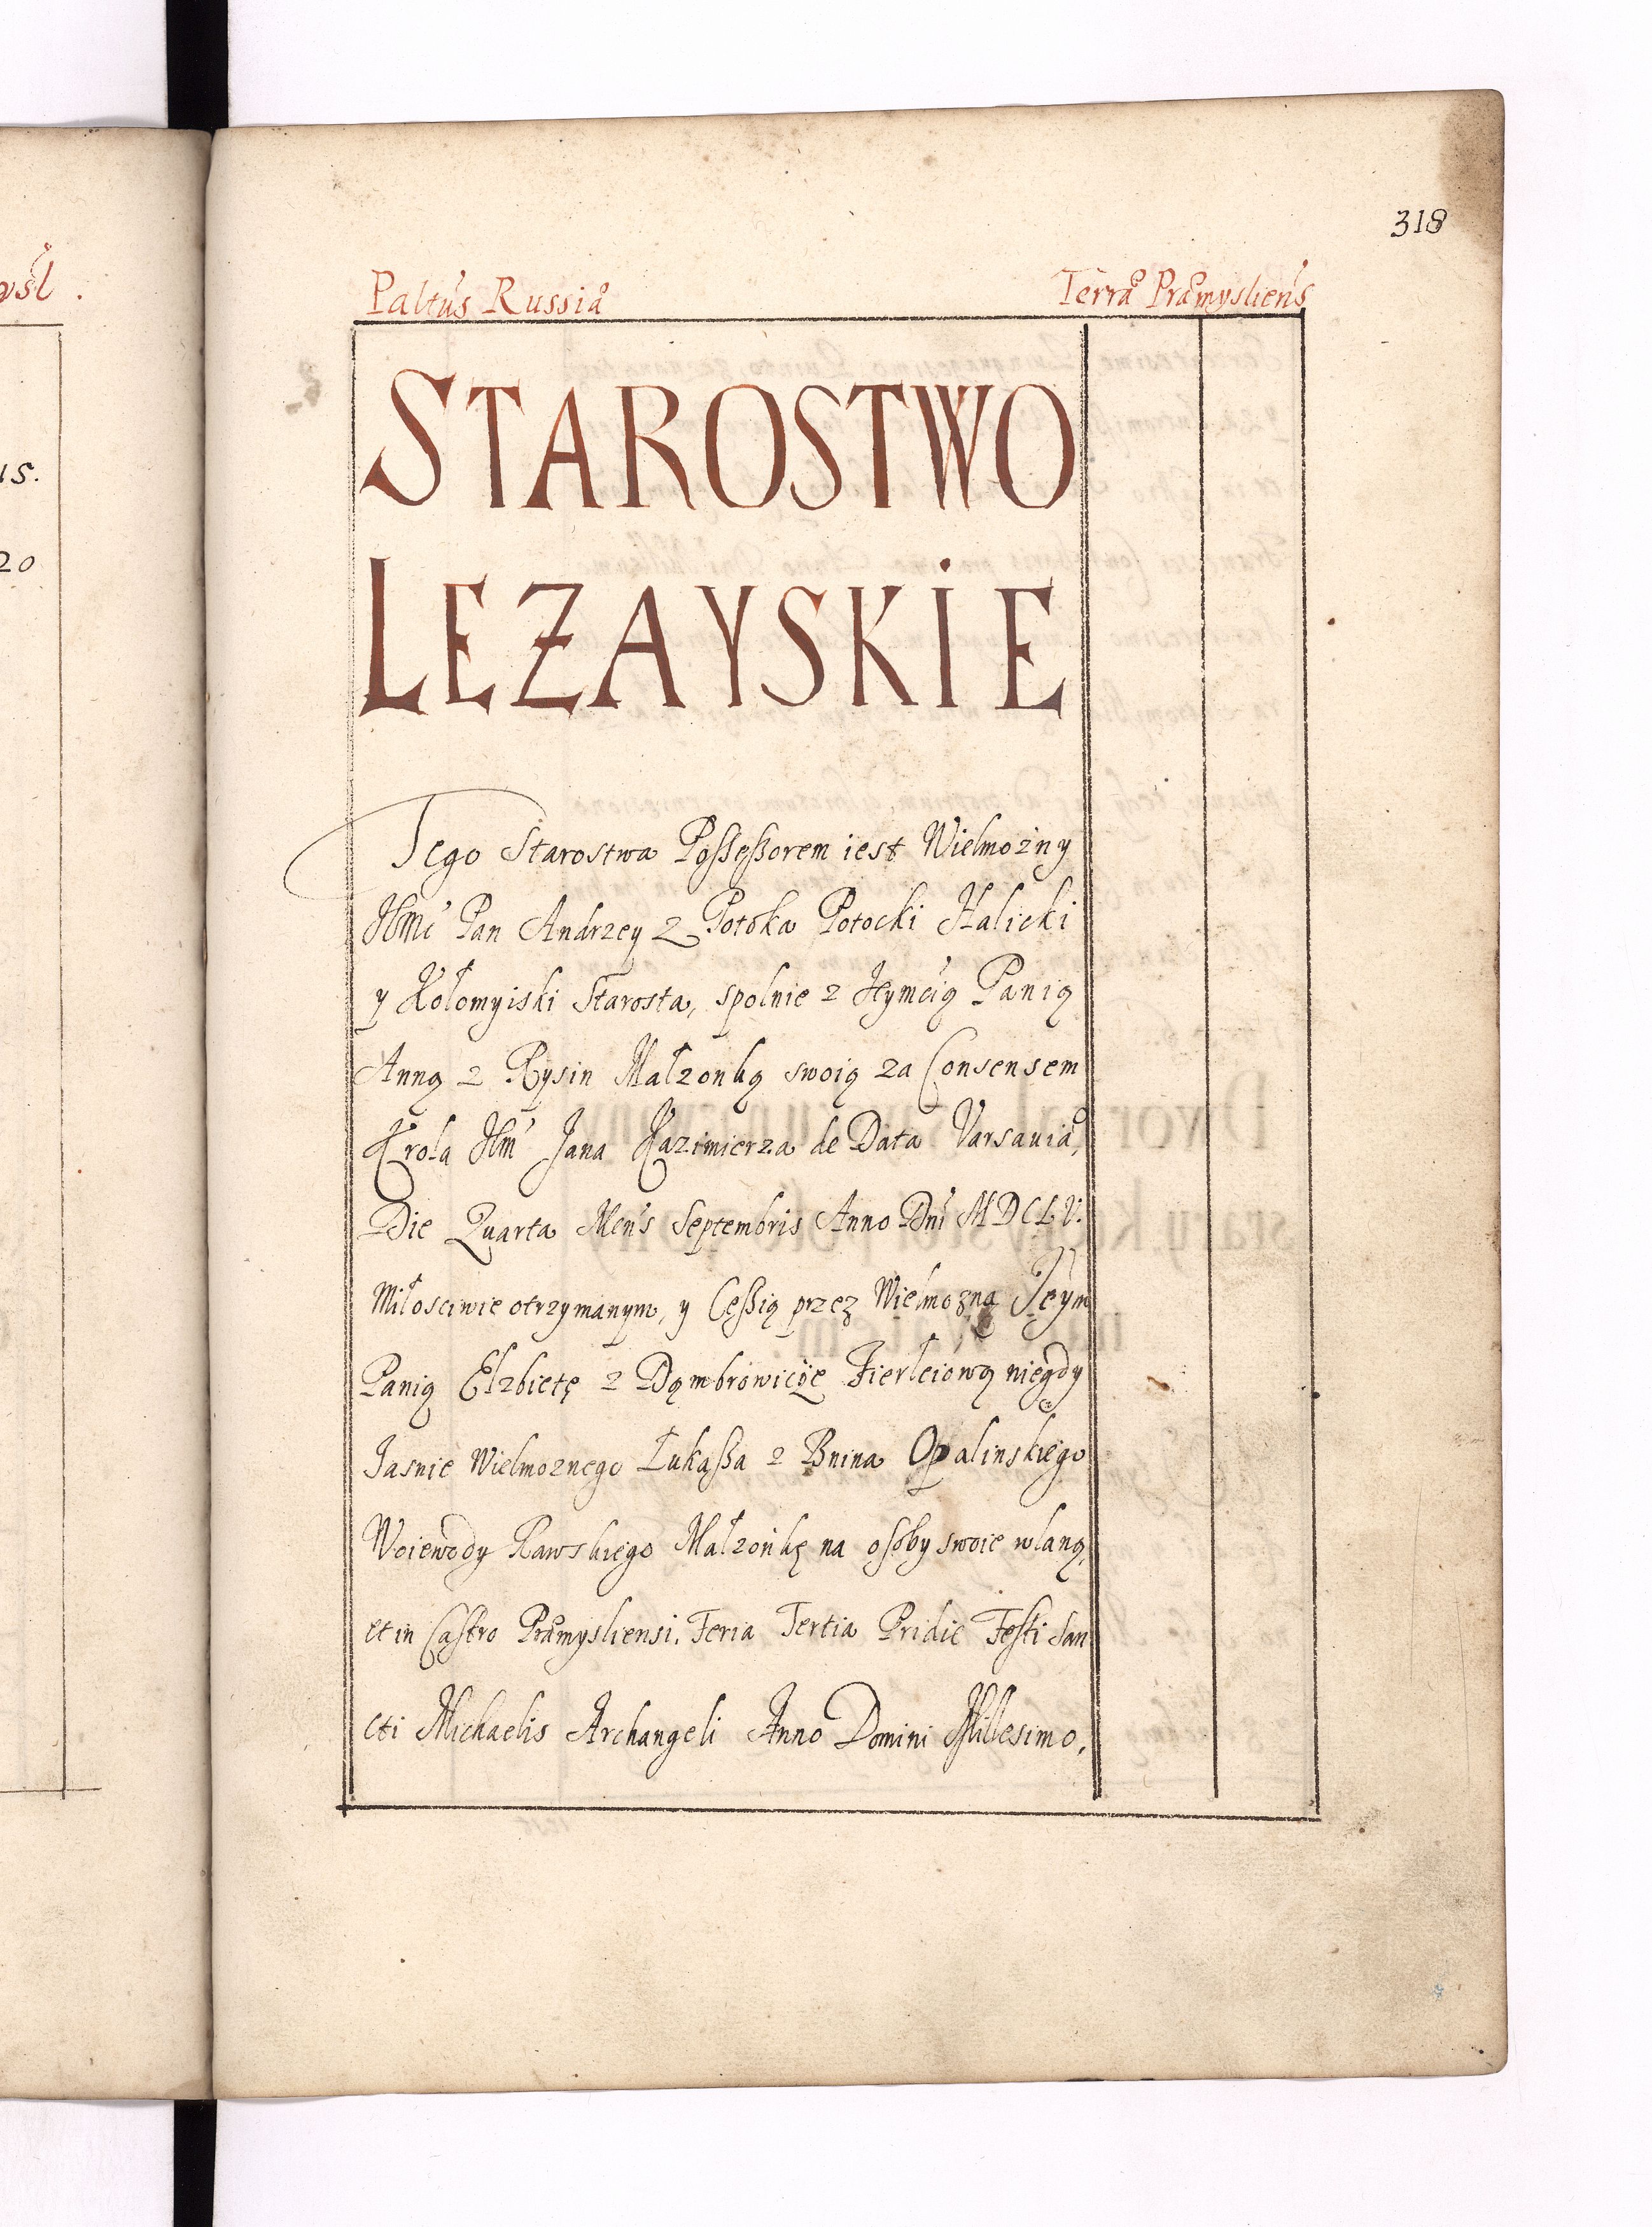 318
ysl.
Paltus Russiæ
Terræ Præmysliens
15.
20
STAROSTWO
LEZAYSKIE
Tego Starostwa Possessorem iest Wielmożny
JEMć Pan Andrzey z Potoka Potocki Halicki
y Kołomyiski Starosta, spolnie z Jeymćią Panią
Anną z Rysin Małzonką swoią za Consensem
Krola JEM Jana Kazimierza de Data Varsaviæ,
Die Quarta Mens Septembris Anno Dni MDCLV.
Miłosciwie otrzymanym, y Cessią przez Wielmozną Jeym
Panią Elzbietę z Dąmbrowice Firleiową niegdy
Jasnie Wielmoznego Łukaßa z Bnina Opalinskiego
Woiewody Rawskiego Małzonkę na osoby swoie wlaną,
et in Castro Præmysliensi. Feria Tertia Pridie Festi San
cti Michaelis Archangeli Anno Domini Millesimo,